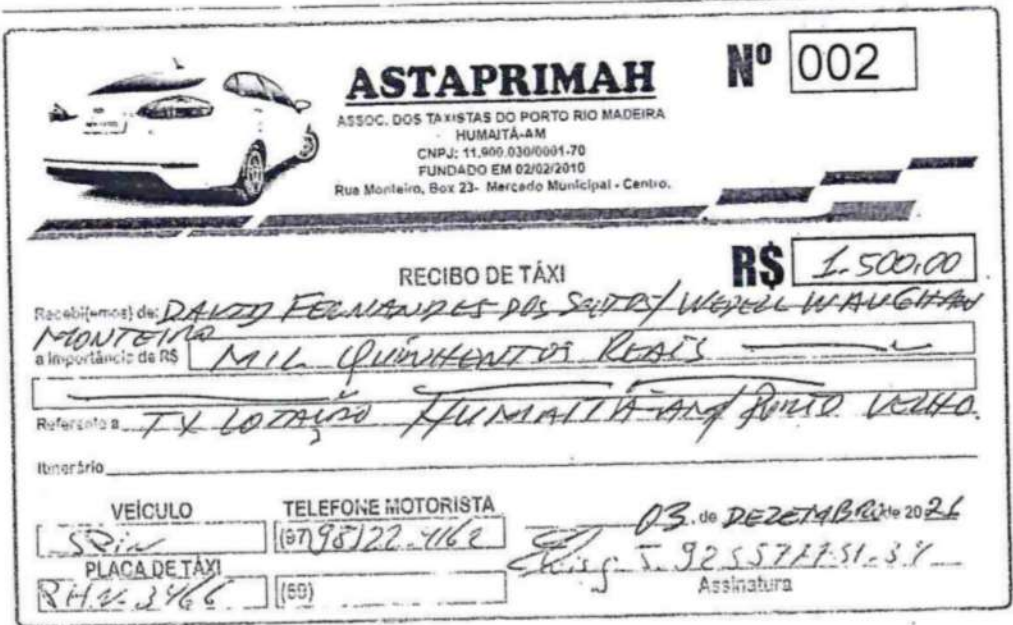 Nº 002
ASTAPRIMAH
ASSOC. DOS TAXISTAS DO PORTO RIO MADEIRA
HUMAITÁ-AM
CNPJ: 11.900.030/0001-70
FUNDADO EM 02/02/2010
Rua Monteiro, Box 23- Mercado Municipal - Centro.
RECIBO DE TÁXI
R$ 1.500,00
Recebi(emos) de: DAVID FERNANDES DOS SANTOS/ WEDELL WAUGHAN
MONTEIRO
a importância de R$ MIL QUINHENTOS REAIS
Referente a TX LOTAÇÃO HUMAITÁ-AM/ PORTO VELHO.
Itinerário
VEÍCULO
SPIN
TELEFONE MOTORISTA
(97) 98122-4162
03 de DEZEMBRO de 20
PLACA DE TÁXI
(69)
Assinatura